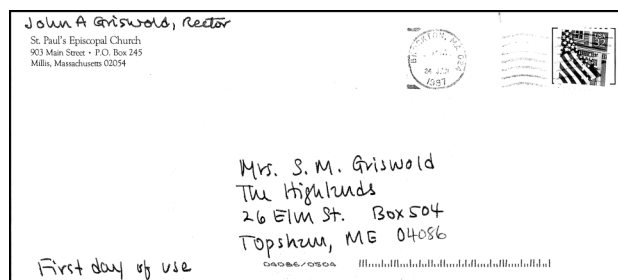 John A Griswold, Rector
St. Paul's Episcopal Church
903 Main Street • P.O. Box 245
Millis, Massachusetts 02054
BROCKTON, MA 024
PM
24 JAN
1997
Mrs. S. M. Griswold
The Highlands
26 Elm St. Box 504
Topsham, ME 04086
First day of use
04086/0504